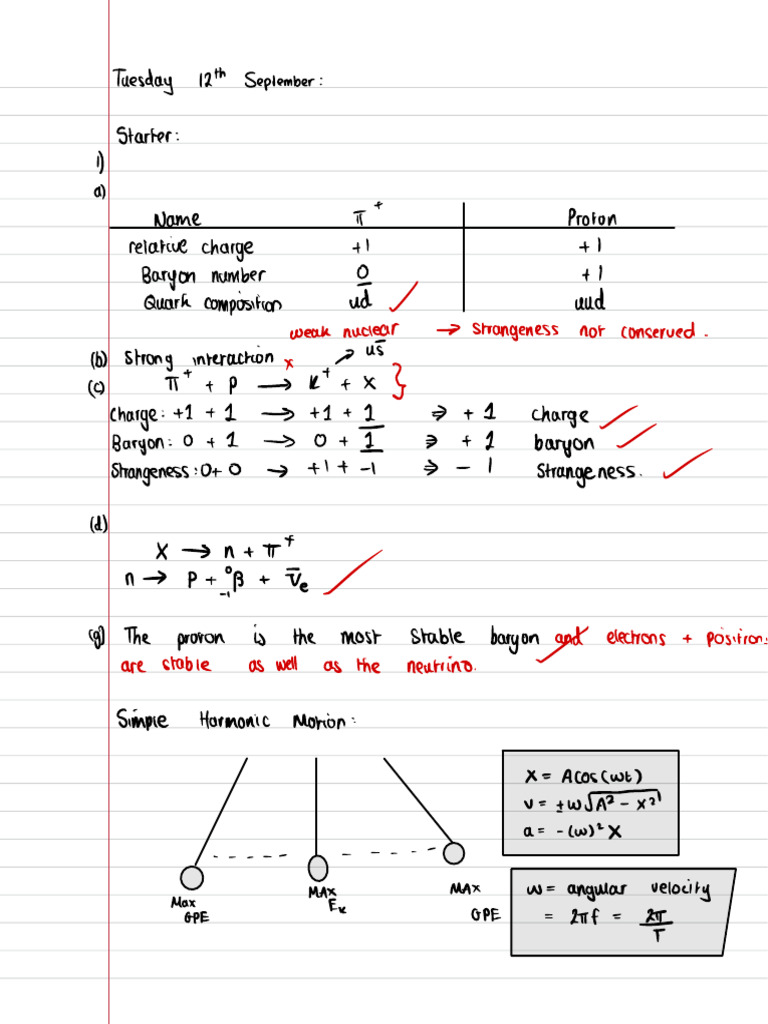 Tuesday 12th September:
Starter:
1)
a)
Name π+ Proton
relative charge +1 +1
Baryon number 0 +1
Quark composition ud̅ uud
weak nuclear → Strangeness not conserved.
(b) Strong interaction x → us̅
(c) π+ + P → K+ + X }
Charge: +1 + 1 → +1 + 1 ⇒ + 1 charge ✓
Baryon: 0 + 1 → 0 + 1 ⇒ + 1 baryon ✓
Strangeness: 0 + 0 → +1 + -1 ⇒ - 1 Strangeness. ✓
(d)
X → n + π+
n → P + ⁰₋₁β + ν̅e ✓
(g) The proton is the most stable baryon and electrons + position:
are stable as well as the neutrino.
Simple Harmonic Motion:
x = Acos(ωt)
v = ±ω√A² - x²
a = -(ω)² x
Max GPE
MAX Ek
MAX GPE
ω = angular velocity
= 2πf = 2π/T